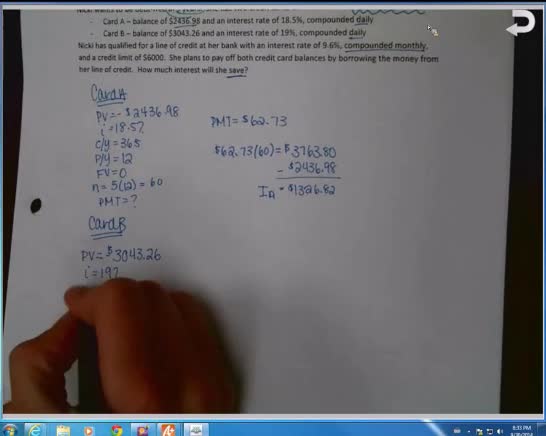 - Card A – balance of $2436.98 and an interest rate of 18.5%, compounded daily
- Card B – balance of $3043.26 and an interest rate of 19%, compounded daily
Nicki has qualified for a line of credit at her bank with an interest rate of 9.6%, compounded monthly,
and a credit limit of $6000. She plans to pay off both credit card balances by borrowing the money from
her line of credit. How much interest will she save?
Card A
PV = -$2436.98
i = 18.5%
C/Y = 365
P/Y = 12
FV = 0
n = 5(12) = 60
PMT = ?
PMT = $62.73
$62.73(60) = $3763.80
- $2436.98
IA = $1326.82
Card B
PV = $3043.26
i = 19%
8:33 PM